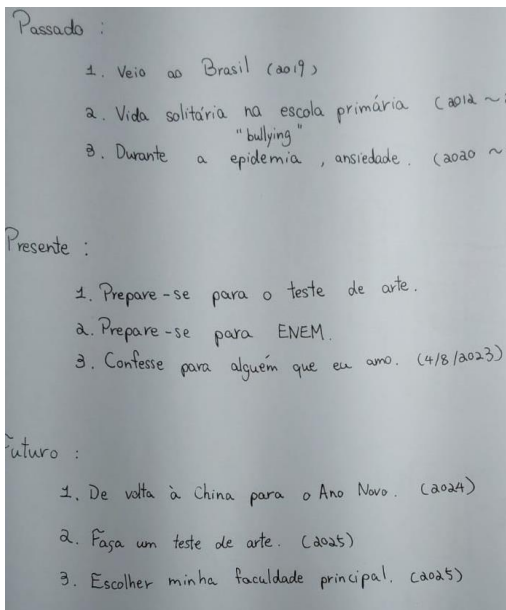 Passado :
1. Veio ao Brasil (2019)
2. Vida solitária na escola primária (2012 ~
"bullying"
3. Durante a epidemia, ansiedade. (2020 ~
Presente :
1. Prepare-se para o teste de arte.
2. Prepare-se para ENEM.
3. Confesse para alguém que eu amo. (4/8/2023)
Futuro :
1. De volta à China para o Ano Novo. (2024)
2. Faça um teste de arte. (2025)
3. Escolher minha faculdade principal. (2025)